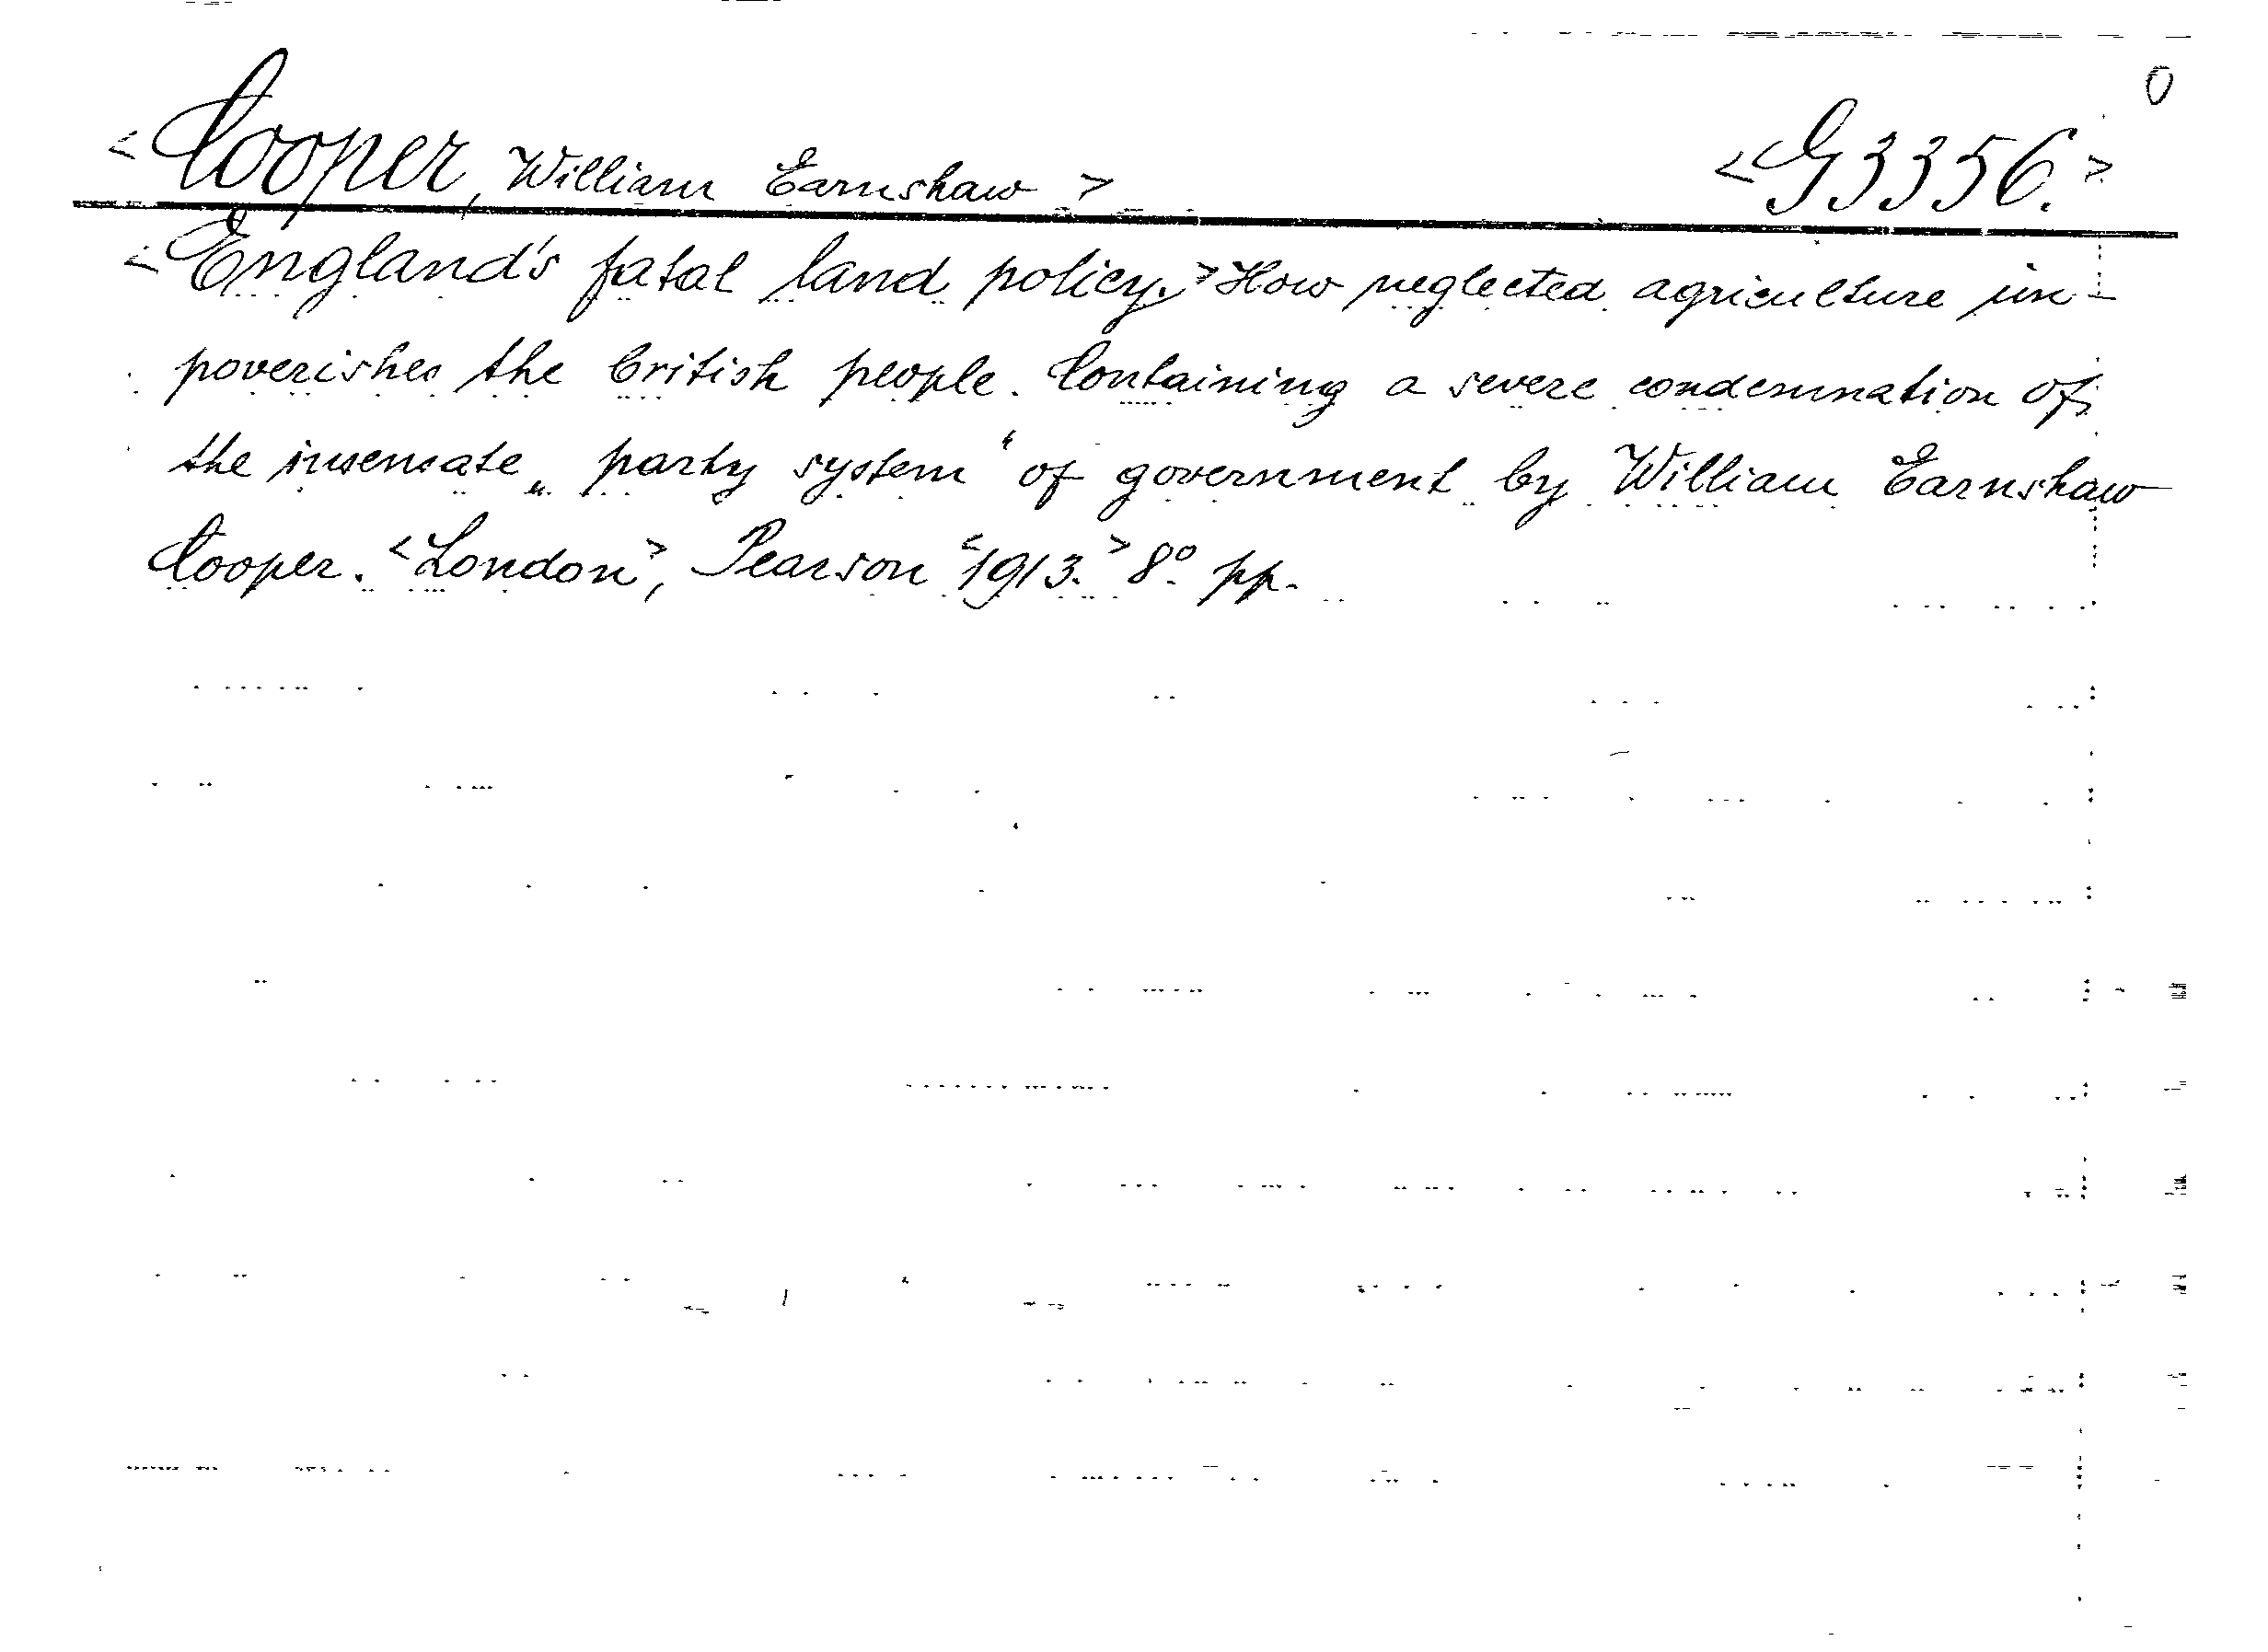 0
<Cooper, William Earnshaw>
<G3356.>
<England's fatal land policy.> How neglected agriculture im-
poverishes the british people. Containing a severe condemnation of
the insensate „party system“ of government by William Earnshaw
Cooper. <London>, Pearson <1913.> 8° pp.